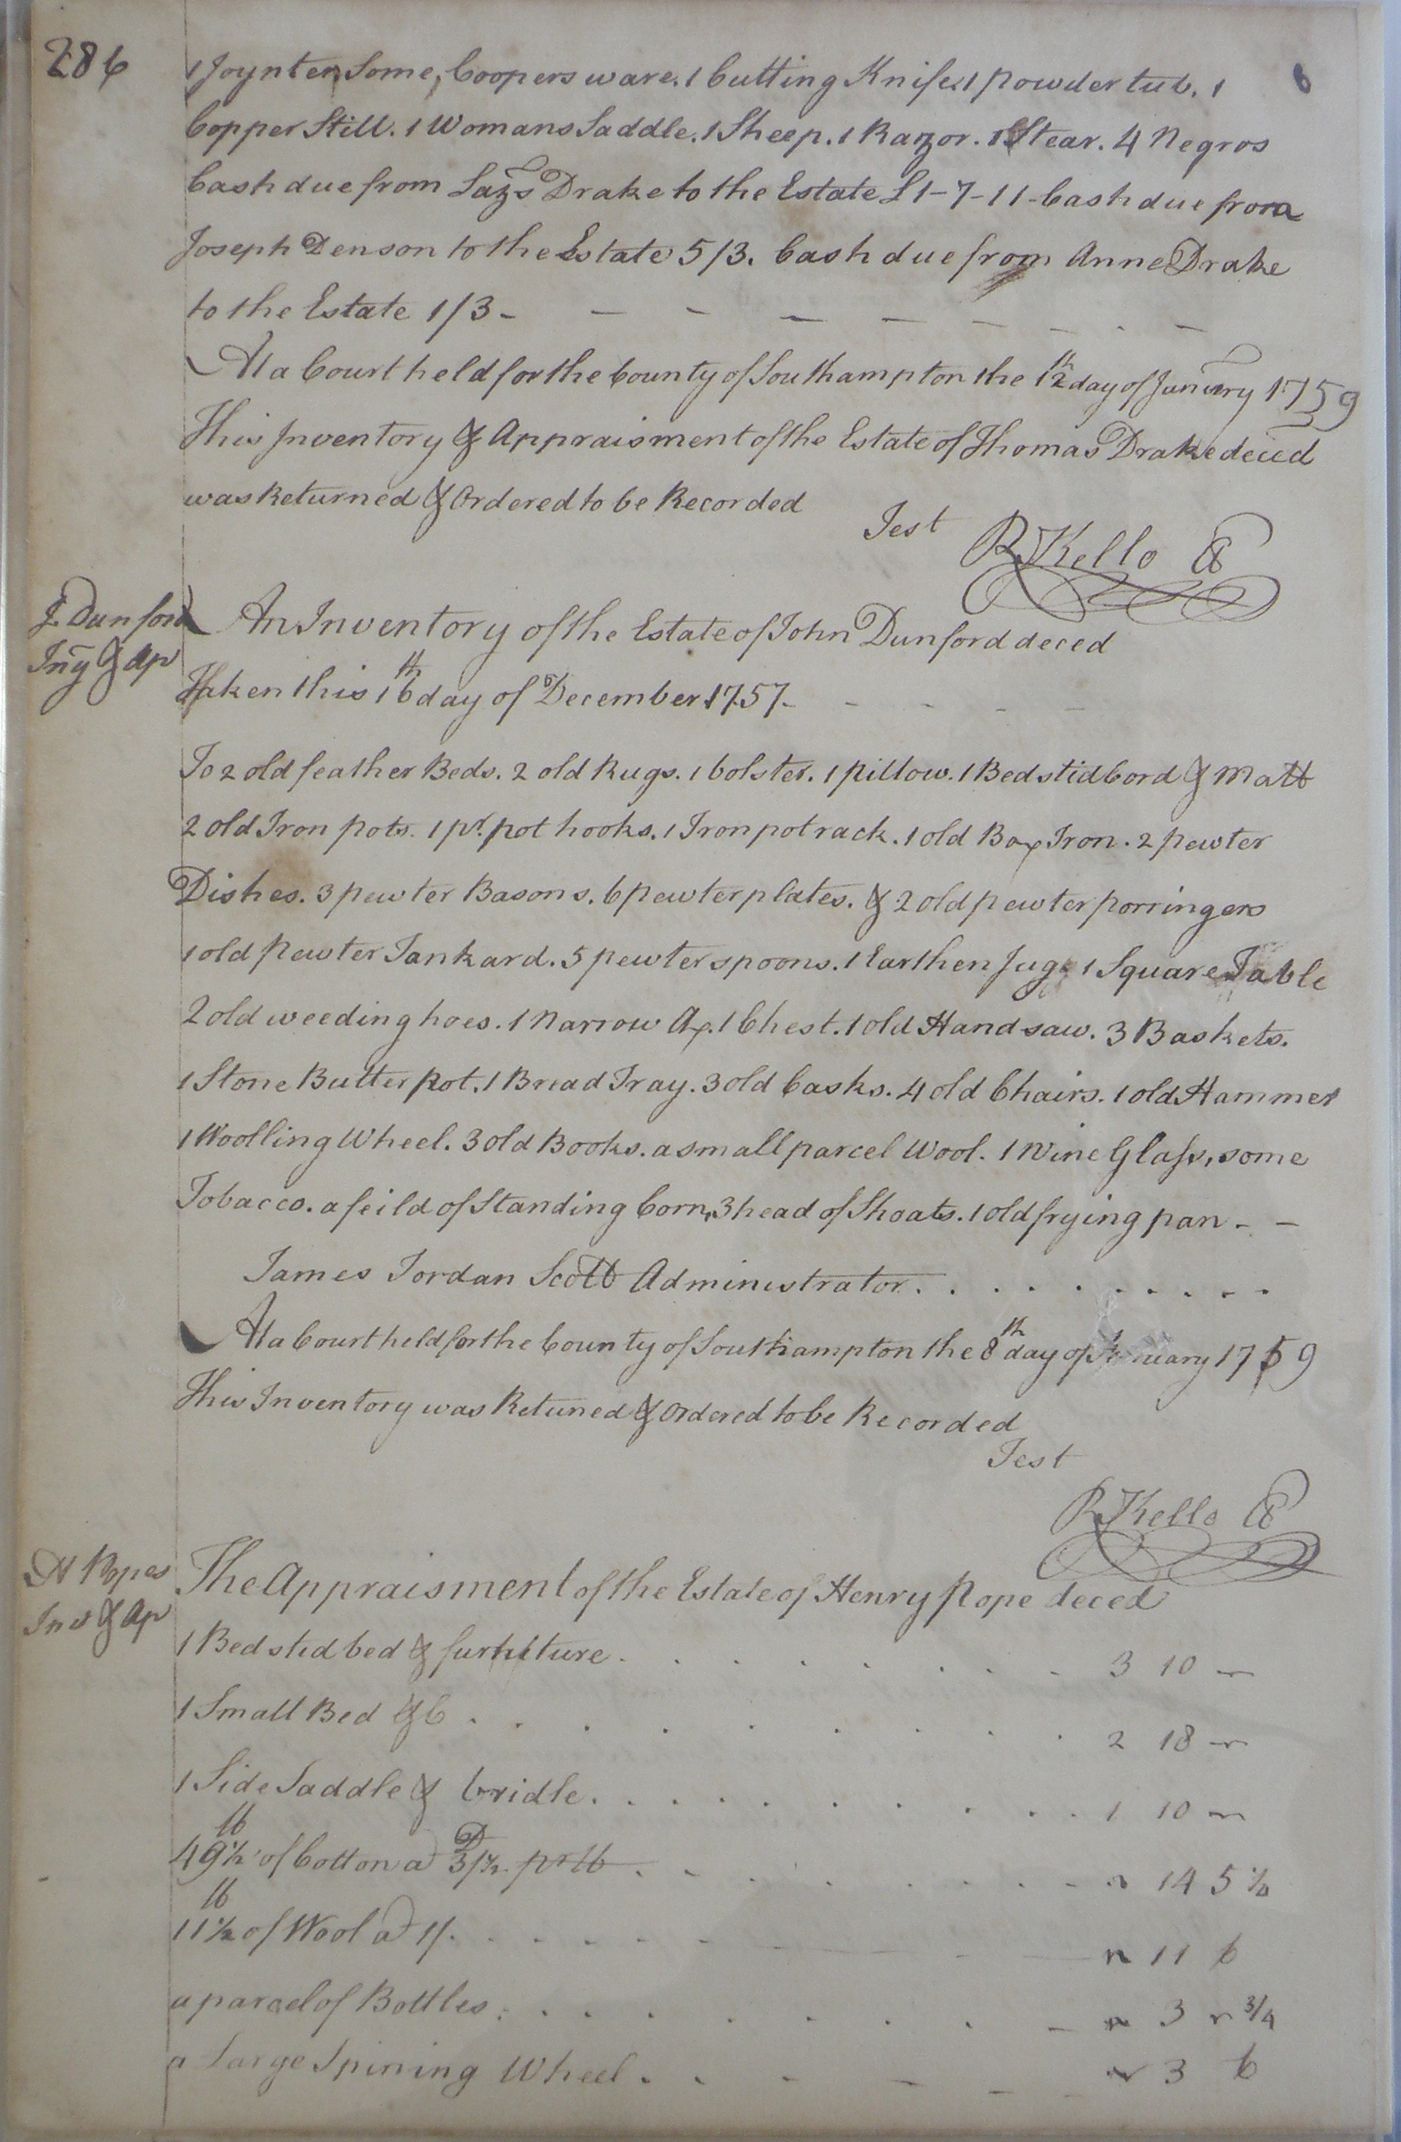 286
1 Joynter, Some, Coopers ware. 1 Cutting Knife 1 powder tub. 1
Copper Still. 1 Womans Saddle. 1 Sheep. 1 Razor. 1 Stear. 4 Negros
Cash due from Lazs Drake to the Estate £1-7-11- Cash due from
Joseph Denson to the Estate 5/3. Cash due from Anne Drake
to the Estate 1/3-
At a Court held for the County of Southampton the 12th day of Janury 1759
This Inventory & Appraisment of the Estate of Thomas Drake deced
was Returned & Ordered to be Recorded
Test R Kello
J. Dunford
Iny & Ap
An Inventory of the Estate of John Dunford deced
Taken this 16th day of December 1757-
To 2 old feather Beds. 2 old Rugs. 1 bolster. 1 pillow. 1 Bedstid Cord & Matt
2 old Iron pots. 1 pr. pot hooks. 1 Iron pot rack. 1 old Box Iron. 2 pewter
Dishes. 3 pewter Basons. 6 pewter plates. & 2 old pewter porringers
1 old pewter Tankard. 5 pewter spoons. 1 Earthen Jug. 1 Square Table
2 old weeding hoes. 1 Narrow Ax. 1 Chest. 1 old Hand saw. 3 Baskets.
1 Stone Butter pot. 1 Bread Tray. 3 old Casks. 4 old Chairs. 1 old Hammer
1 Woolling Wheel. 3 old Books. a small parcel Wool. 1 Wine Glass, some
Tobacco. a feild of Standing Corn, 3 head of Shoats. 1 old frying pan - -
James Jordan Scott Administrator
At a Court held for the County of Southampton the 8th day of uary 1759
This Inventory was Retuned & Ordered to be Recorded
Test
R Kello
H Popes
Inv & Ap
The Appraisment of the Estate of Henry Pope deced
1 Bedstid bed & furniture 3 10 -
1 Small Bed &C 2 18 -
1 Side Saddle & bridle 1 10 -
49 1/2 lb of Cotton a 3 1/2 D pr lb - 14 5 1/4
11 1/2 lb of Wool a 1/. - 11 6
a parcel of Bottles - 3 - 3/4
a Large Spining Wheel - 3 6